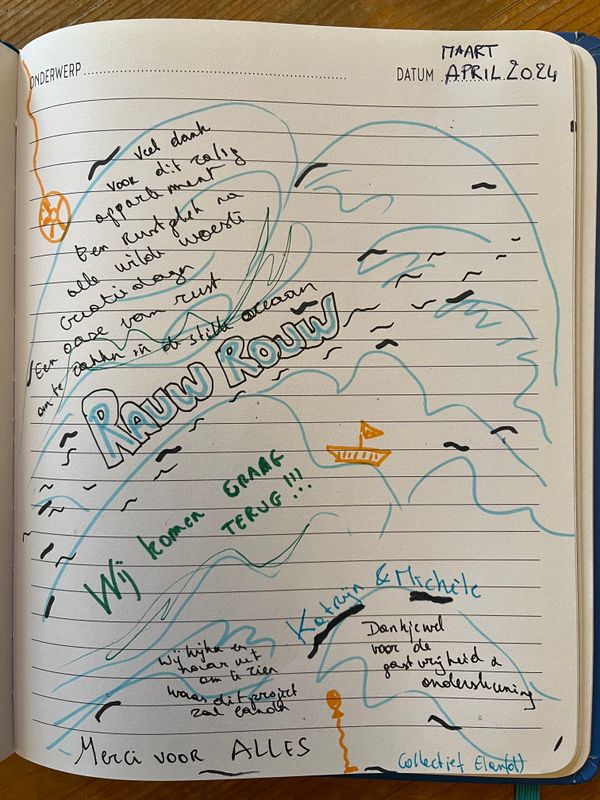 ONDERWERP
DATUM
MAART
APRIL 2024
Veel dank
voor dit zalig
appartment
Een rustplek na
alle wilde woeste
creatiedagen
Een oase van rust
om te zakken in de stille oceaan
RAUW ROUW
Wij komen GRAAG
TERUG!!!
Katrijn & Michèle
Wij kijken er
naar uit
om te zien
waar dit project
zal landen
Dankjewel
voor de
gastvrijheid &
ondersteuning
Merci voor ALLES
Collectief